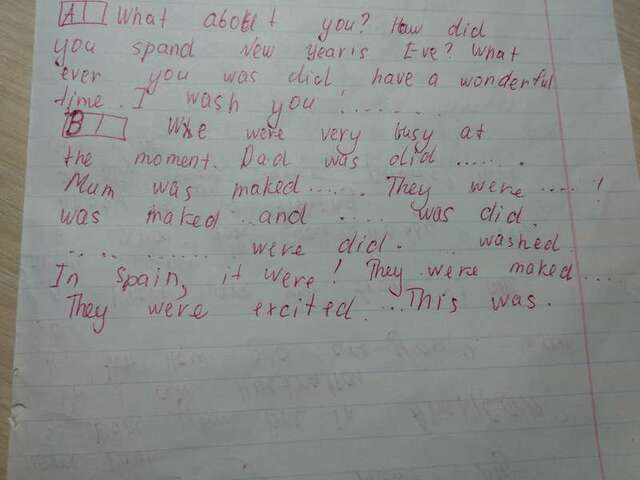 A What about you? How did
you spand New Year's Eve? What
ever you was did have a wonderful
time. I wash you!......
B We were very busy at
the moment. Dad was did .......
Mum was maked...... They were ....!
was maked and .... was did.
.... ....... were did. washed
In Spain, it were! They were maked....
They were excited. ...This was.